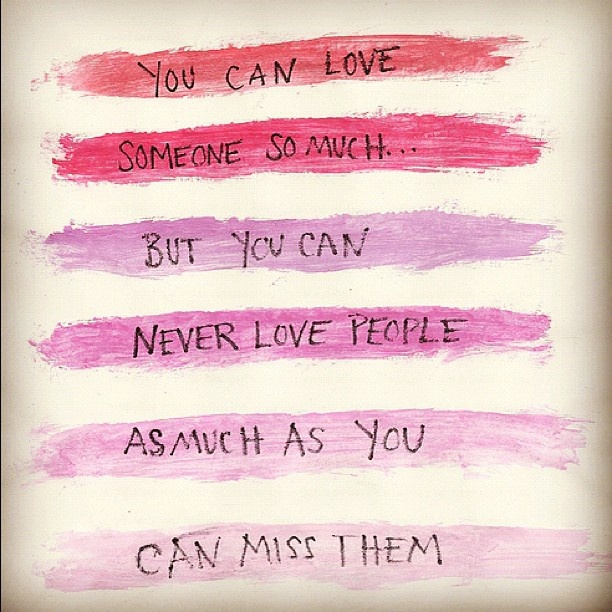 YOU CAN LOVE
SOMEONE SO MUCH...
BUT YOU CAN
NEVER LOVE PEOPLE
AS MUCH AS YOU
CAN MISS THEM